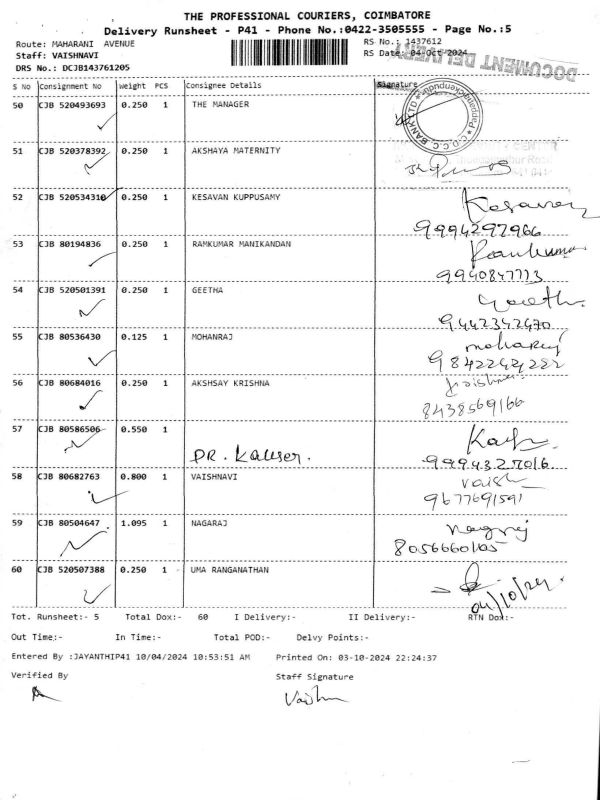 THE PROFESSIONAL COURIERS, COIMBATORE
Delivery Runsheet - P41 - Phone No.:0422-3505555 - Page No.:5
Route: MAHARANI AVENUE
RS No.: 1437612
Staff: VAISHNAVI
RS Date: 04-Oct-2024
DOCUMENT DELIVERY
DRS No.: DCJB143761205
S No Consignment No Weight PCS Consignee Details Signature
50 CJB 520493693 0.250 1 THE MANAGER
51 CJB 520378392 0.250 1 AKSHAYA MATERNITY
52 CJB 520534310 0.250 1 KESAVAN KUPPUSAMY Kesavan
9994297966
53 CJB 80194836 0.250 1 RAMKUMAR MANIKANDAN Ramkumar
9940847713
54 CJB 520501391 0.250 1 GEETHA Geetha
9442342470
55 CJB 80536430 0.125 1 MOHANRAJ mohanraj
9842242222
56 CJB 80684016 0.250 1 AKSHSAY KRISHNA
8438569166
57 CJB 80586506 0.550 1
DR. Kauser. 9994327016
58 CJB 80682763 0.800 1 VAISHNAVI Vaish
9677691591
59 CJB 80504647 1.095 1 NAGARAJ Nagraj
8056660105
60 CJB 520507388 0.250 1 UMA RANGANATHAN
04/10/24.
Tot. Runsheet:- 5 Total Dox:- 60 I Delivery:- II Delivery:- RTN Dox:-
Out Time:- In Time:- Total POD:- Delvy Points:-
Entered By :JAYANTHIP41 10/04/2024 10:53:51 AM Printed On: 03-10-2024 22:24:37
Verified By Staff Signature